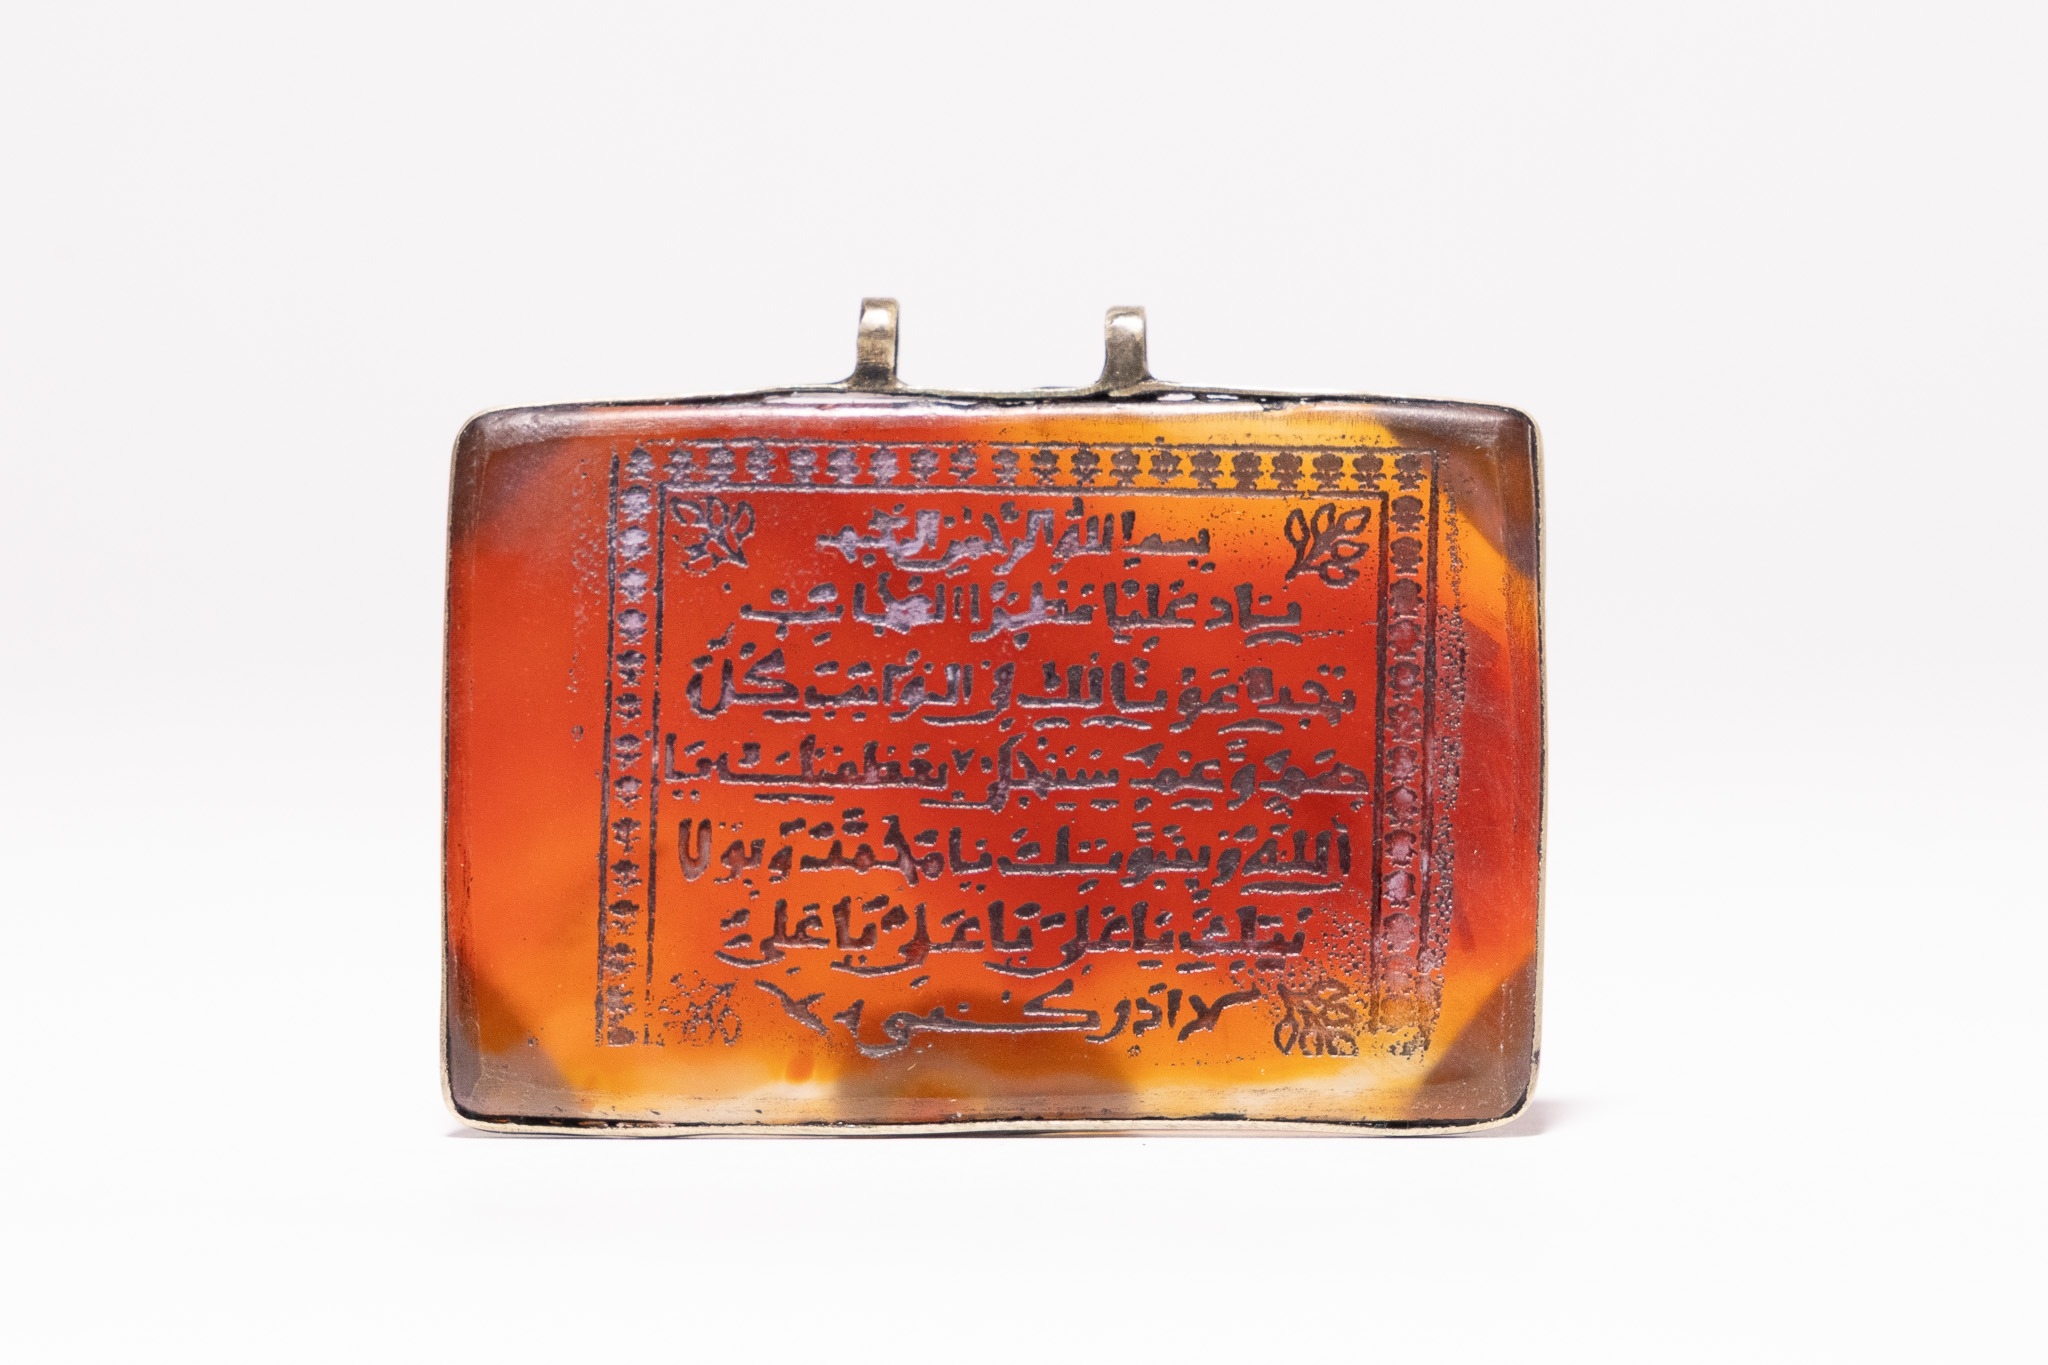 بسم الله الرحمن الرحيم
ناد عليا مظهر العجائب
تجده عونا لك في النوائب كل
هم وغم سينجلي بعظمتك يا
الله وبنبوتك يا محمد وبولا
يتك يا علي يا علي يا علي
ادركني